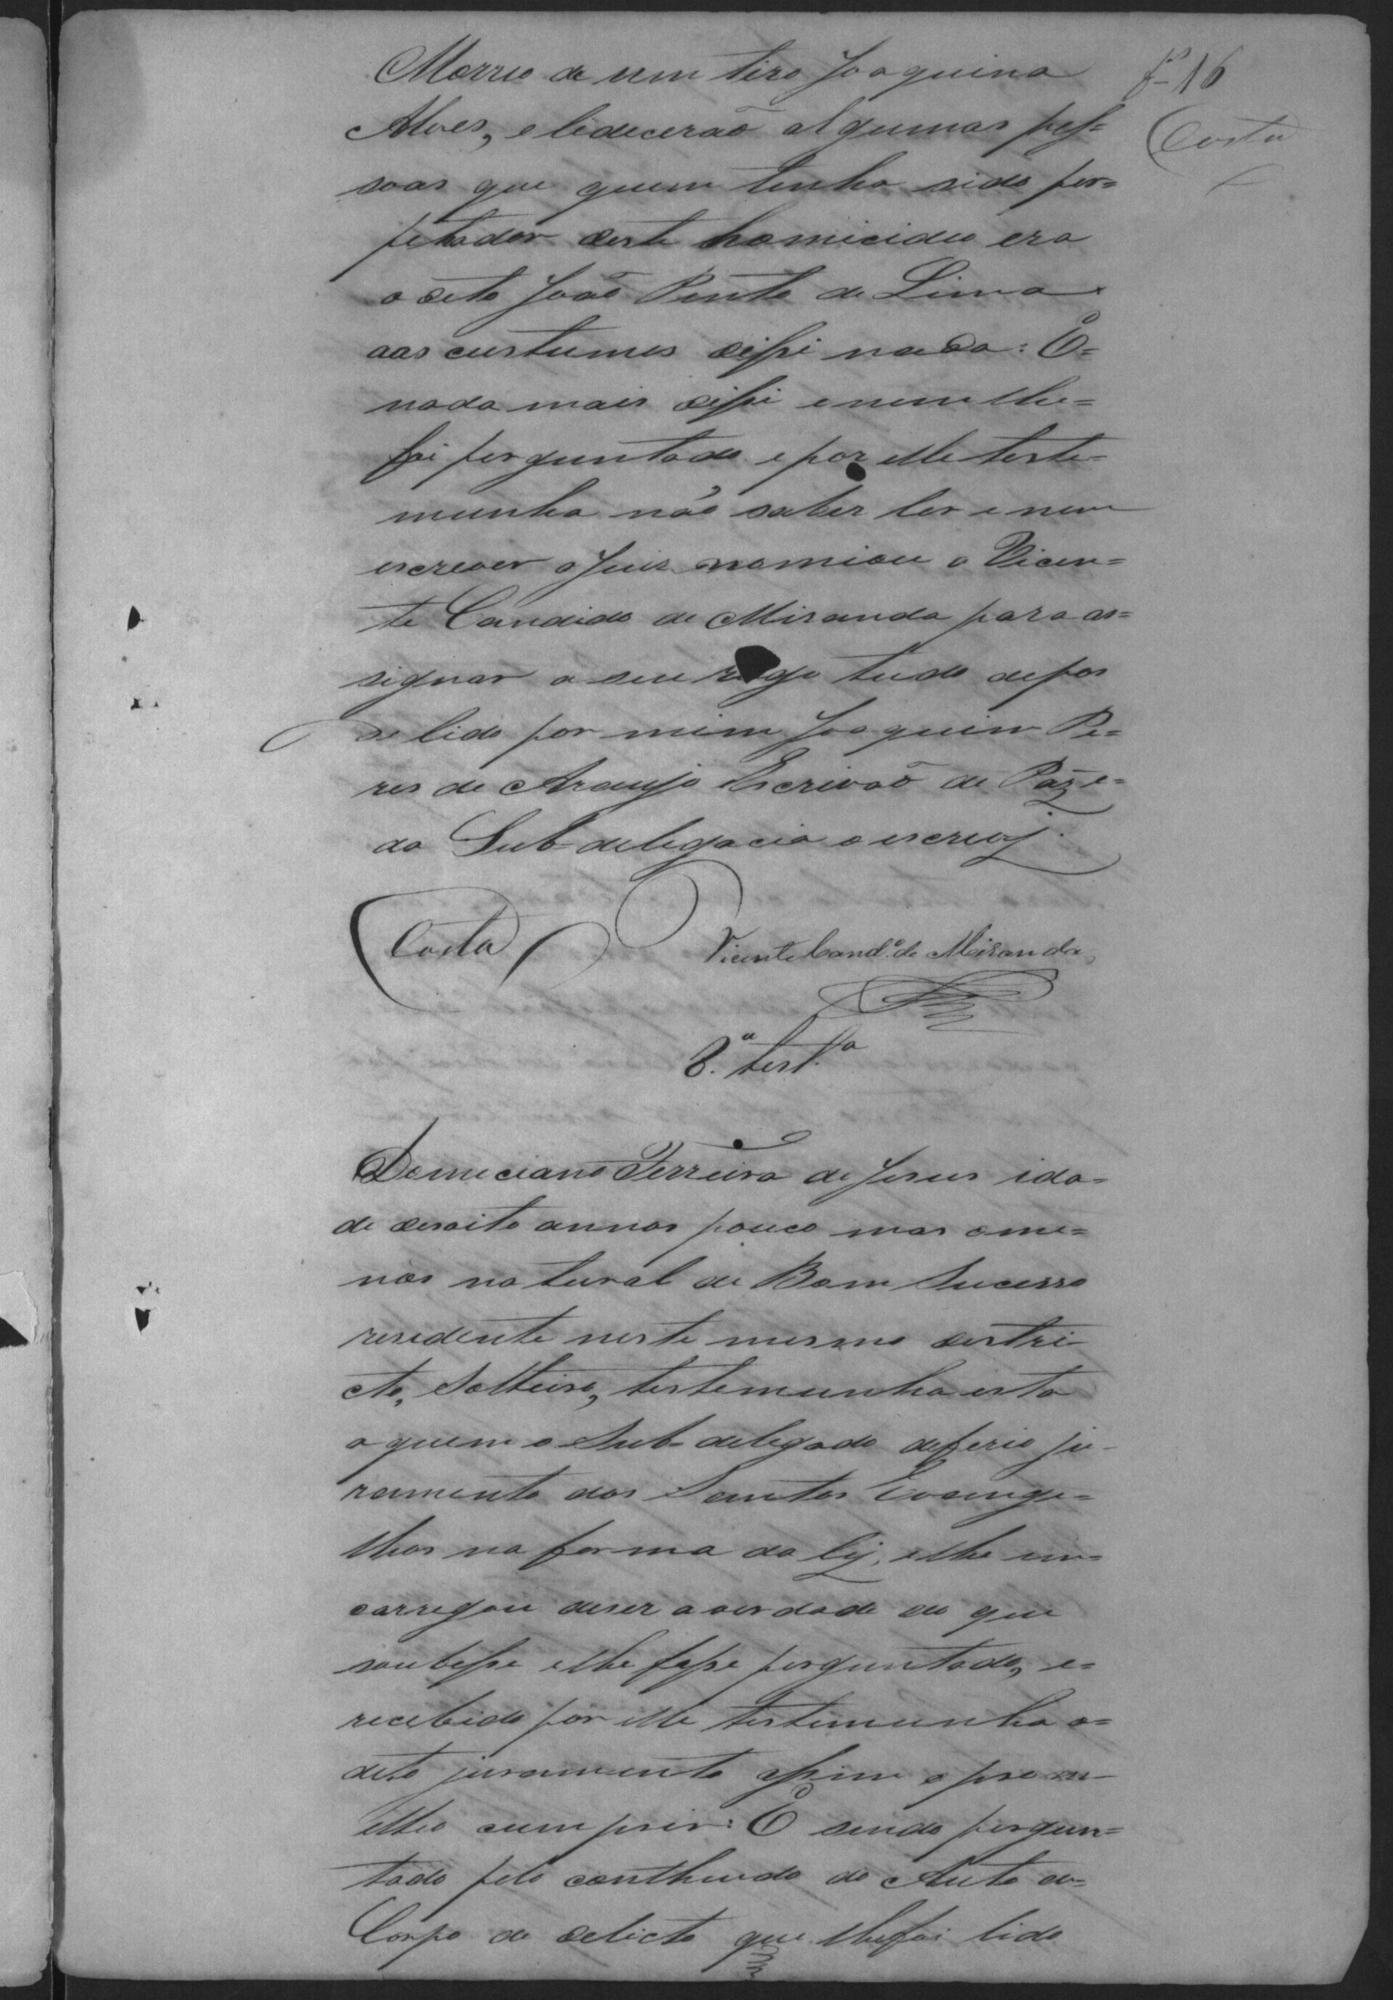 f.16
Costa
Morreo de um tiro Joaquina
Alves, e lidicerão algumas pes=
soas que quem tinha sido per=
petador deste homicidio era
o dito João Pinto de Lima
aos custumes disse nada: E=
nada mais disse e nem lhe=
foi perguntado e por elle teste=
munha não saber ler e nem
escrever o Juiz nomiou o Vicen=
te Candido de Miranda para as=
signar a seu rogo tudo depos
de lido por mim Joaquim Pe=
res de Araujo Escrivão de Paz e=
da Sub-delegacia o escrevy.
Costa
Vicente Cand.º de Miranda,
8.ª test.ª
Domiciano Ferreira de Jesus ida=
de desoito annos pouco mas ome=
nos natural de Bom Sucesso
residente neste mesmo destri
cto, Solteiro, testemunha esta
a quem o Sub-delegado deferio ju-
ramento aos Santos Evange=
lhos na forma da ley, e lhe en=
carregou diser a verdade do que
soubesse e lhe fosse perguntado, e=
recebido por elle testemunha o=
dito juramento assim o prom-
etteo cumprir: E sendo pergun=
tado pelo conthiudo do Auto de=
Corpo de delicto que lhe foi lido